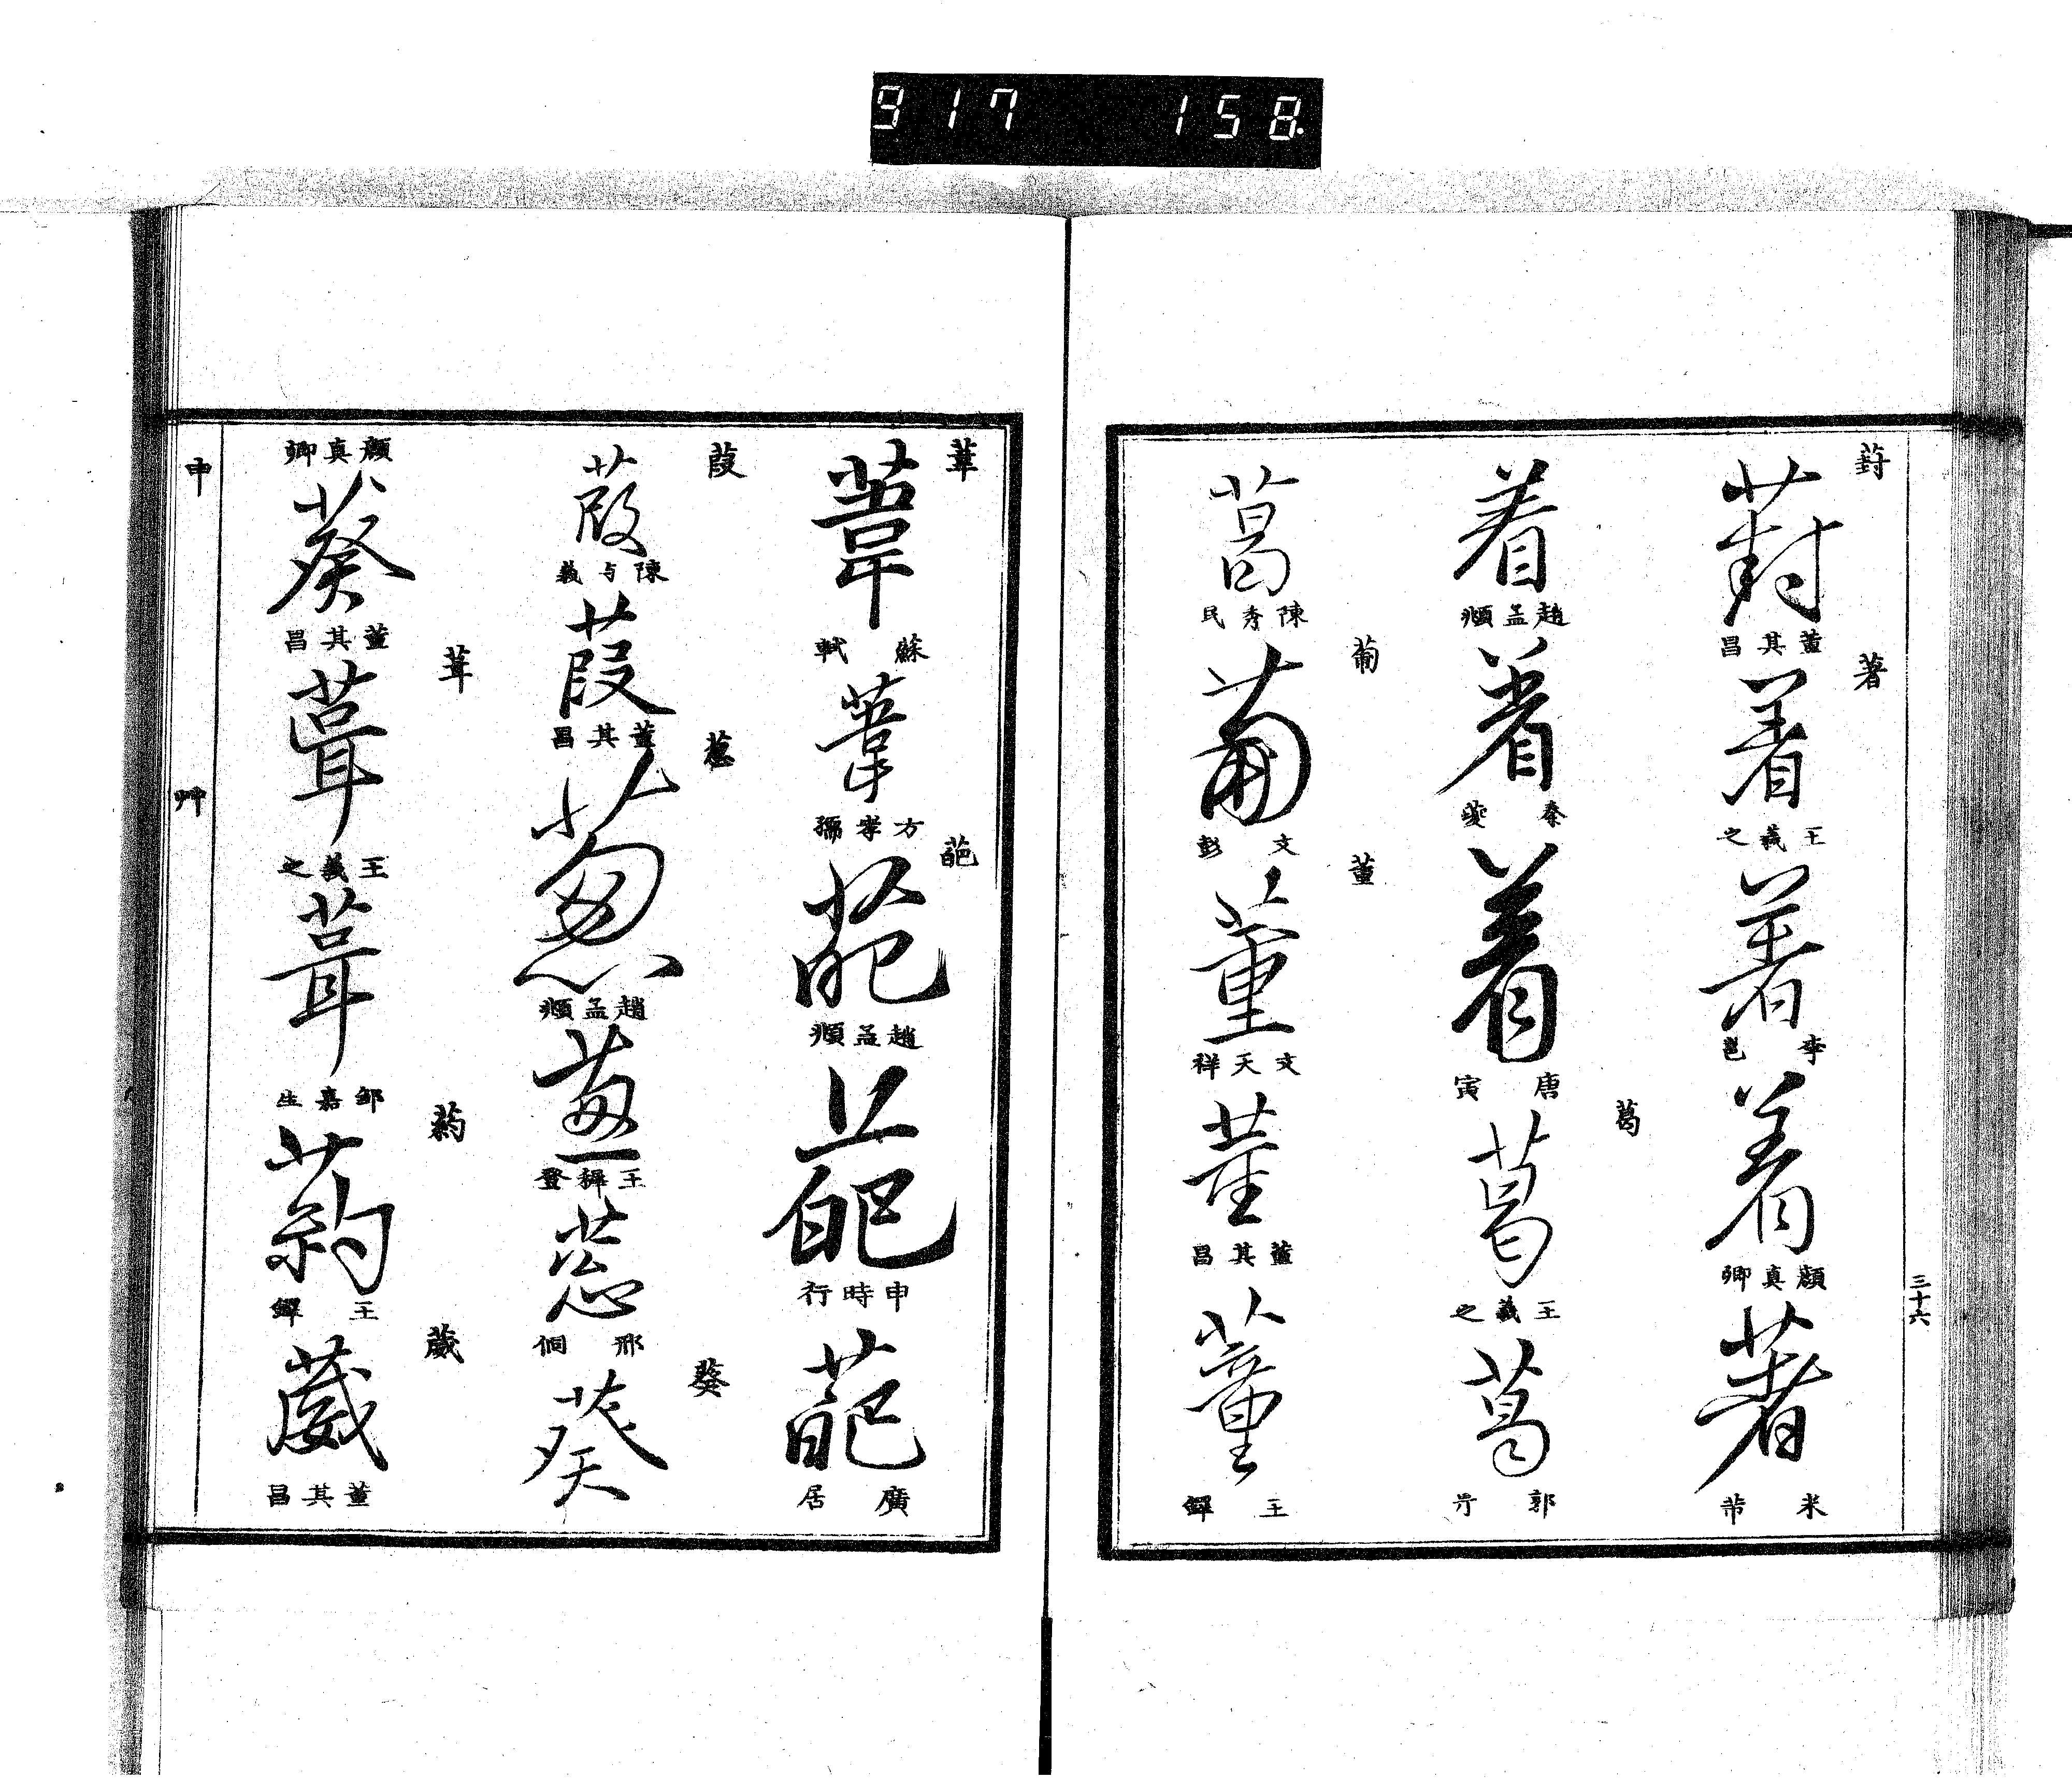 917 158
三十六
葑
葑
董其昌
著
著
王羲之
著
李邕
著
顏真卿
著
米芾
着
趙孟頫
著
秦夔
著
唐寅
葛
葛
王羲之
葛
郭
葛
陳秀民
葡
葡
文彭
董
董
文天祥
董
董其昌
董
王鐸
葦
葦
蘇軾
葦
方孝孺
葩
葩
趙孟頫
葩
申時行
葩
廣居
葭
葭
陳与義
葭
董其昌
葱
葱
趙孟頫
葱
王穉登
蔥
邢侗
葵
葵
顏真卿
葵
董其昌
葺
葺
王羲之
葺
鄒嘉生
葯
葯
王鐸
葳
葳
董其昌
申
艸